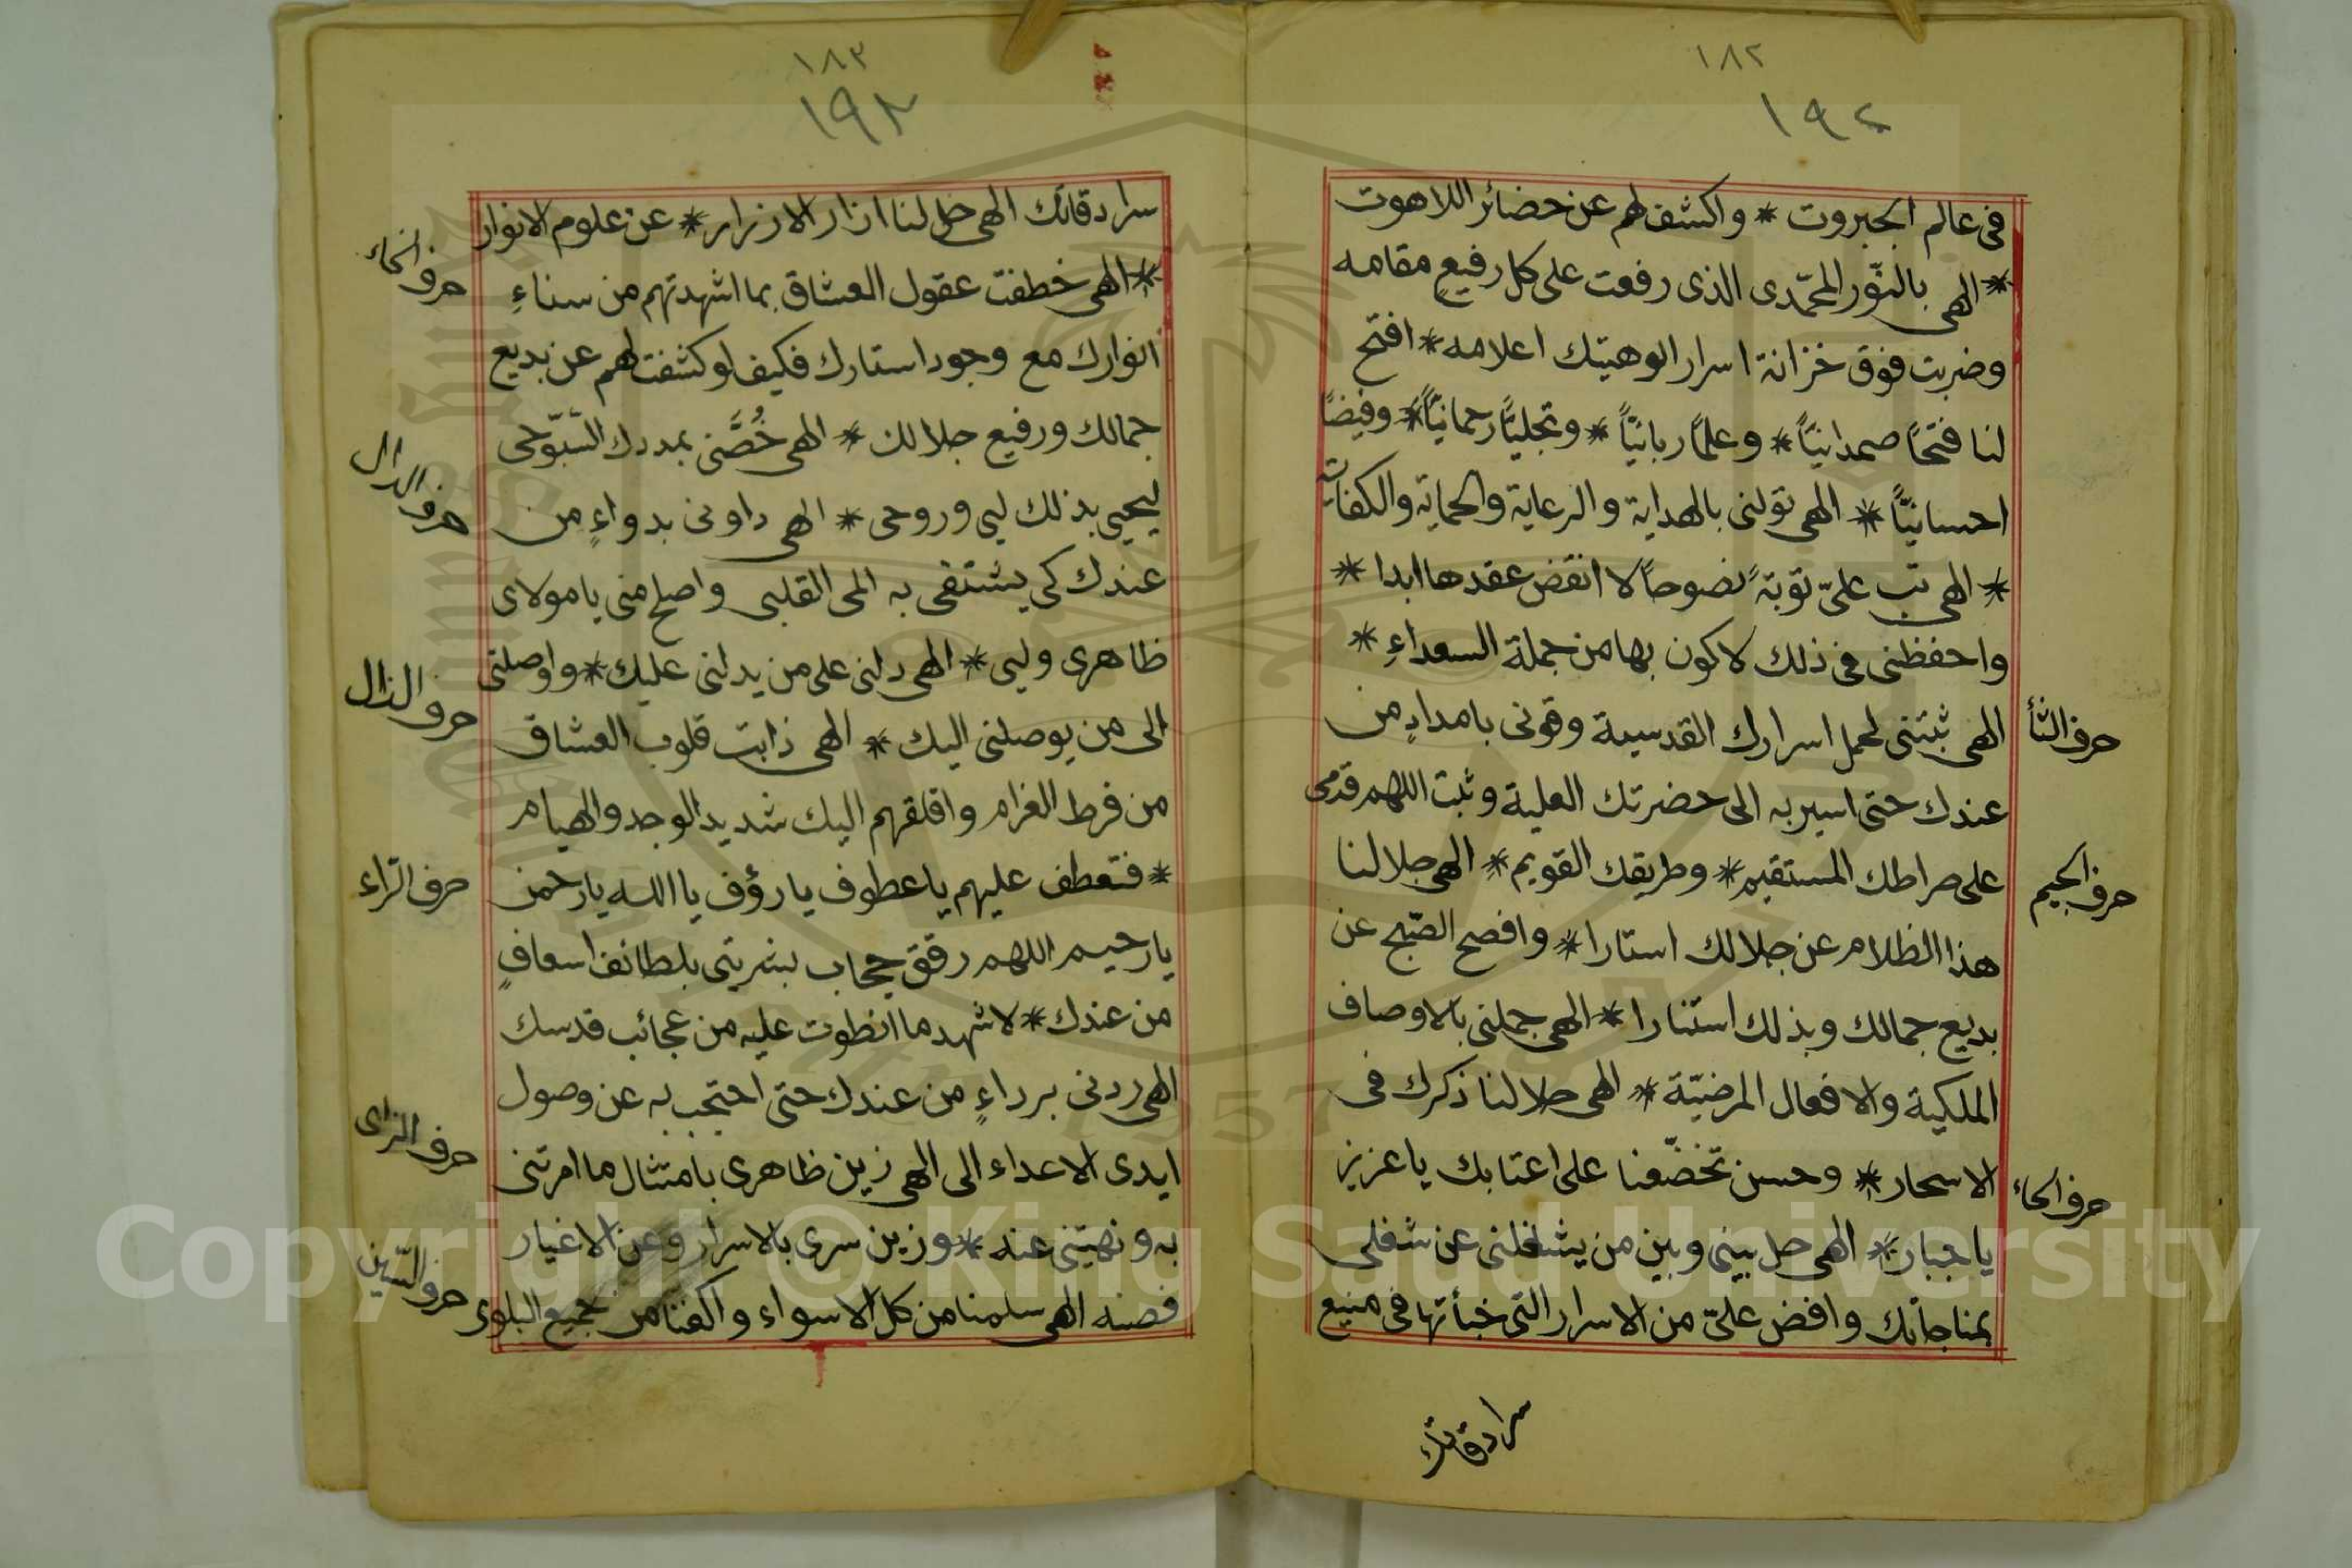 ١٨٢
١٩٢
فى عالم الجبروت * واكشف لهم عن حضائر اللاهوت
* الهى بالنّور المحمّدى الذى رفعت على كل رفيع مقامه
وضربت فوق خزانة اسرار الوهيتك اعلامه * افتح
لنا فتحًا صمدانيّاً * وعلمًا ربانيّاً * وتجليًّا رحمانيّاً * وفيضًا
احسانيّاً * الهى تولنى بالهداية والرعاية والحماية والكفاية
* الهى تب علىّ توبةً نصوحاً لا انقض عقدها ابدا *
واحفظنى فى ذلك لاكون بها من جملة السعداءِ *
الهى ثبتنى لحمل اسرارك القدسية وقونى بامدادٍ من
حرف الثأ
عندك حتى اسير به الى حضرتك العلية وثبت اللهم قدمى
على صراطك المستقيم * وطريقك القويم * الهى جلا لنا
حرف الجيم
هذا الظلام عن جلالك استارا * وافصح الصّبح عن
بديع جمالك وبذلك استنارا * الهى جملنى بالاوصاف
الملكية والافعال المرضيّة * الهى حلا لنا ذكرك فى
الاسحار * وحسن تخضّعنا على اعتابك يا عزيز
حرف الحاء
يا جبار * الهى حل بينى وبين من يشغلنى عن شغلى
بمناجاتك وافض علىّ من الاسرار التى خبأتها فى منيع
سرادقاتك
١٨٣
١٩٣
سرادقاتك الهى حل لنا ازار الازرار * عن علوم الانوار
* الهى خطفت عقول العشاق بما اشهدتهم من سناءِ
حرف الخاء
انوارك مع وجود استارك فكيف لو كشفت لهم عن بديع
جمالك ورفيع جلالك * الهى خُصَّنى بمددك السّبّوحى
ليحيى بذلك لبى وروحى * الهى داونى بدواءٍ من
حرف الدال
عندك كى يشتفى به المى القلبى واصلح منى يا مولاى
ظاهرى ولبى * الهى دلنى على من يدلنى عليك * واوصلنى
الى من يوصلنى اليك * الهى ذابت قلوب العشاق
حرف الذال
من فرط الغرام واقلقهم اليك شديد الوجد والهيام
* فتعطف عليهم يا عطوف يا رؤف يا الله يا رحمن
حرف الرّاء
يا رحيم اللهم رقق حجاب بشريتى بلطائف اسعافٍ
من عندك * لاشهد ما انطوت عليه من عجائب قدسك
الهى ردنى برداءٍ من عندك حتى احتجب به عن وصول
ايدى الاعداء الى الهى زين ظاهرى بامتثال ما امرتنى
حرف الزاى
به ونهيتنى عنه * وزين سرى بالاسرار وعن الاغيار
فصنه الهى سلمنا من كل الاسواء واكفنا من جميع البلوى
حرف السّين
Copyright © King Saud University